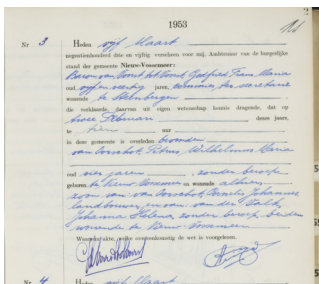 1953
Nr 3 Heden vijf Maart
negentienhonderd drie en vijftig verscheen voor mij, Ambtenaar van de burgerlijke
stand der gemeente Nieuw-Vossemeer:
Baron van Voorst tot Voorst, Godfried Frans Maria
oud vijf en veertig jaren,
wonende te Steenbergen
die verklaarde, daarvan uit eigen wetenschap kennis dragende, dat op
twee Februari dezes jaars,
te tien uur
in deze gemeente is overleden
van Oorschot, Petrus Wilhelmus Maria
oud vier jaren, zonder beroep
geboren te Nieuw-Vossemeer en wonende aldaar
zoon van van Oorschot, Johannes
landbouwer, en van van der
Johanna Helena, zonder beroep, beiden
wonende te Nieuw Vossemeer
Waarvan akte, welke overeenkomstig de wet is voorgelezen.
Nr 4 Heden vijf Maart